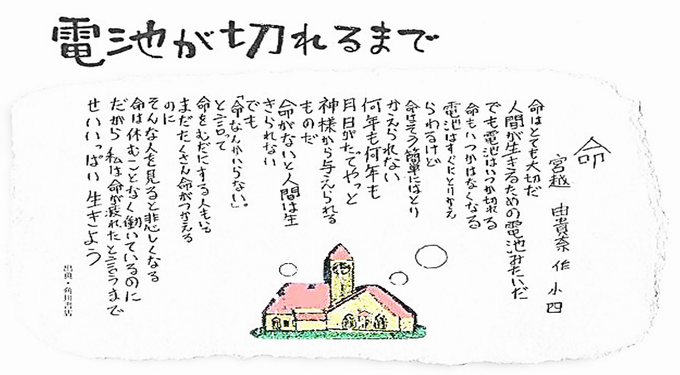 電池が切れるまで
命
宮越 由貴奈 作 小四
命はとても大切だ
人間が生きるための電池みたいだ
でも電池はいつか切れる
命もいつかはなくなる
電池はすぐにとりかえ
られるけど
命はそう簡単にはとり
かえられない
何年も何年も
月日がたってやっと
神様から与えられる
ものだ
命がないと人間は生
きられない
でも
「命なんかいらない。」
と言って
命をむだにする人もいる
まだたくさん命がつかえる
のに
そんな人を見ると悲しくなる
命は休むことなく働いているのに
だから 私は命が疲れたと言うまで
せいいっぱい生きよう
出典・角川書店